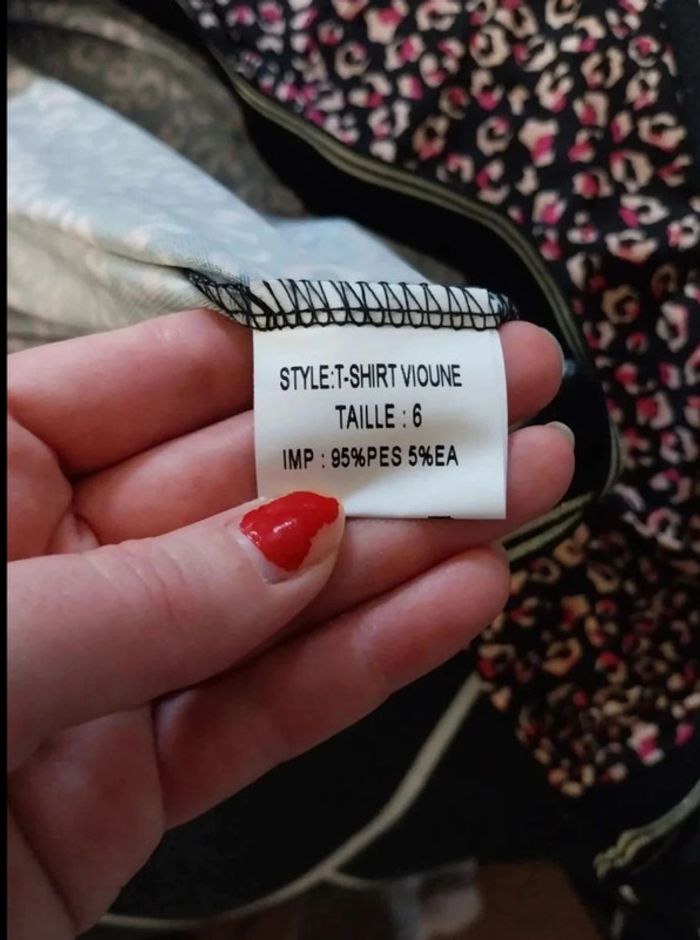 STYLE:T-SHIRT VIOUNE
TAILLE : 6
IMP : 95%PES 5%EA